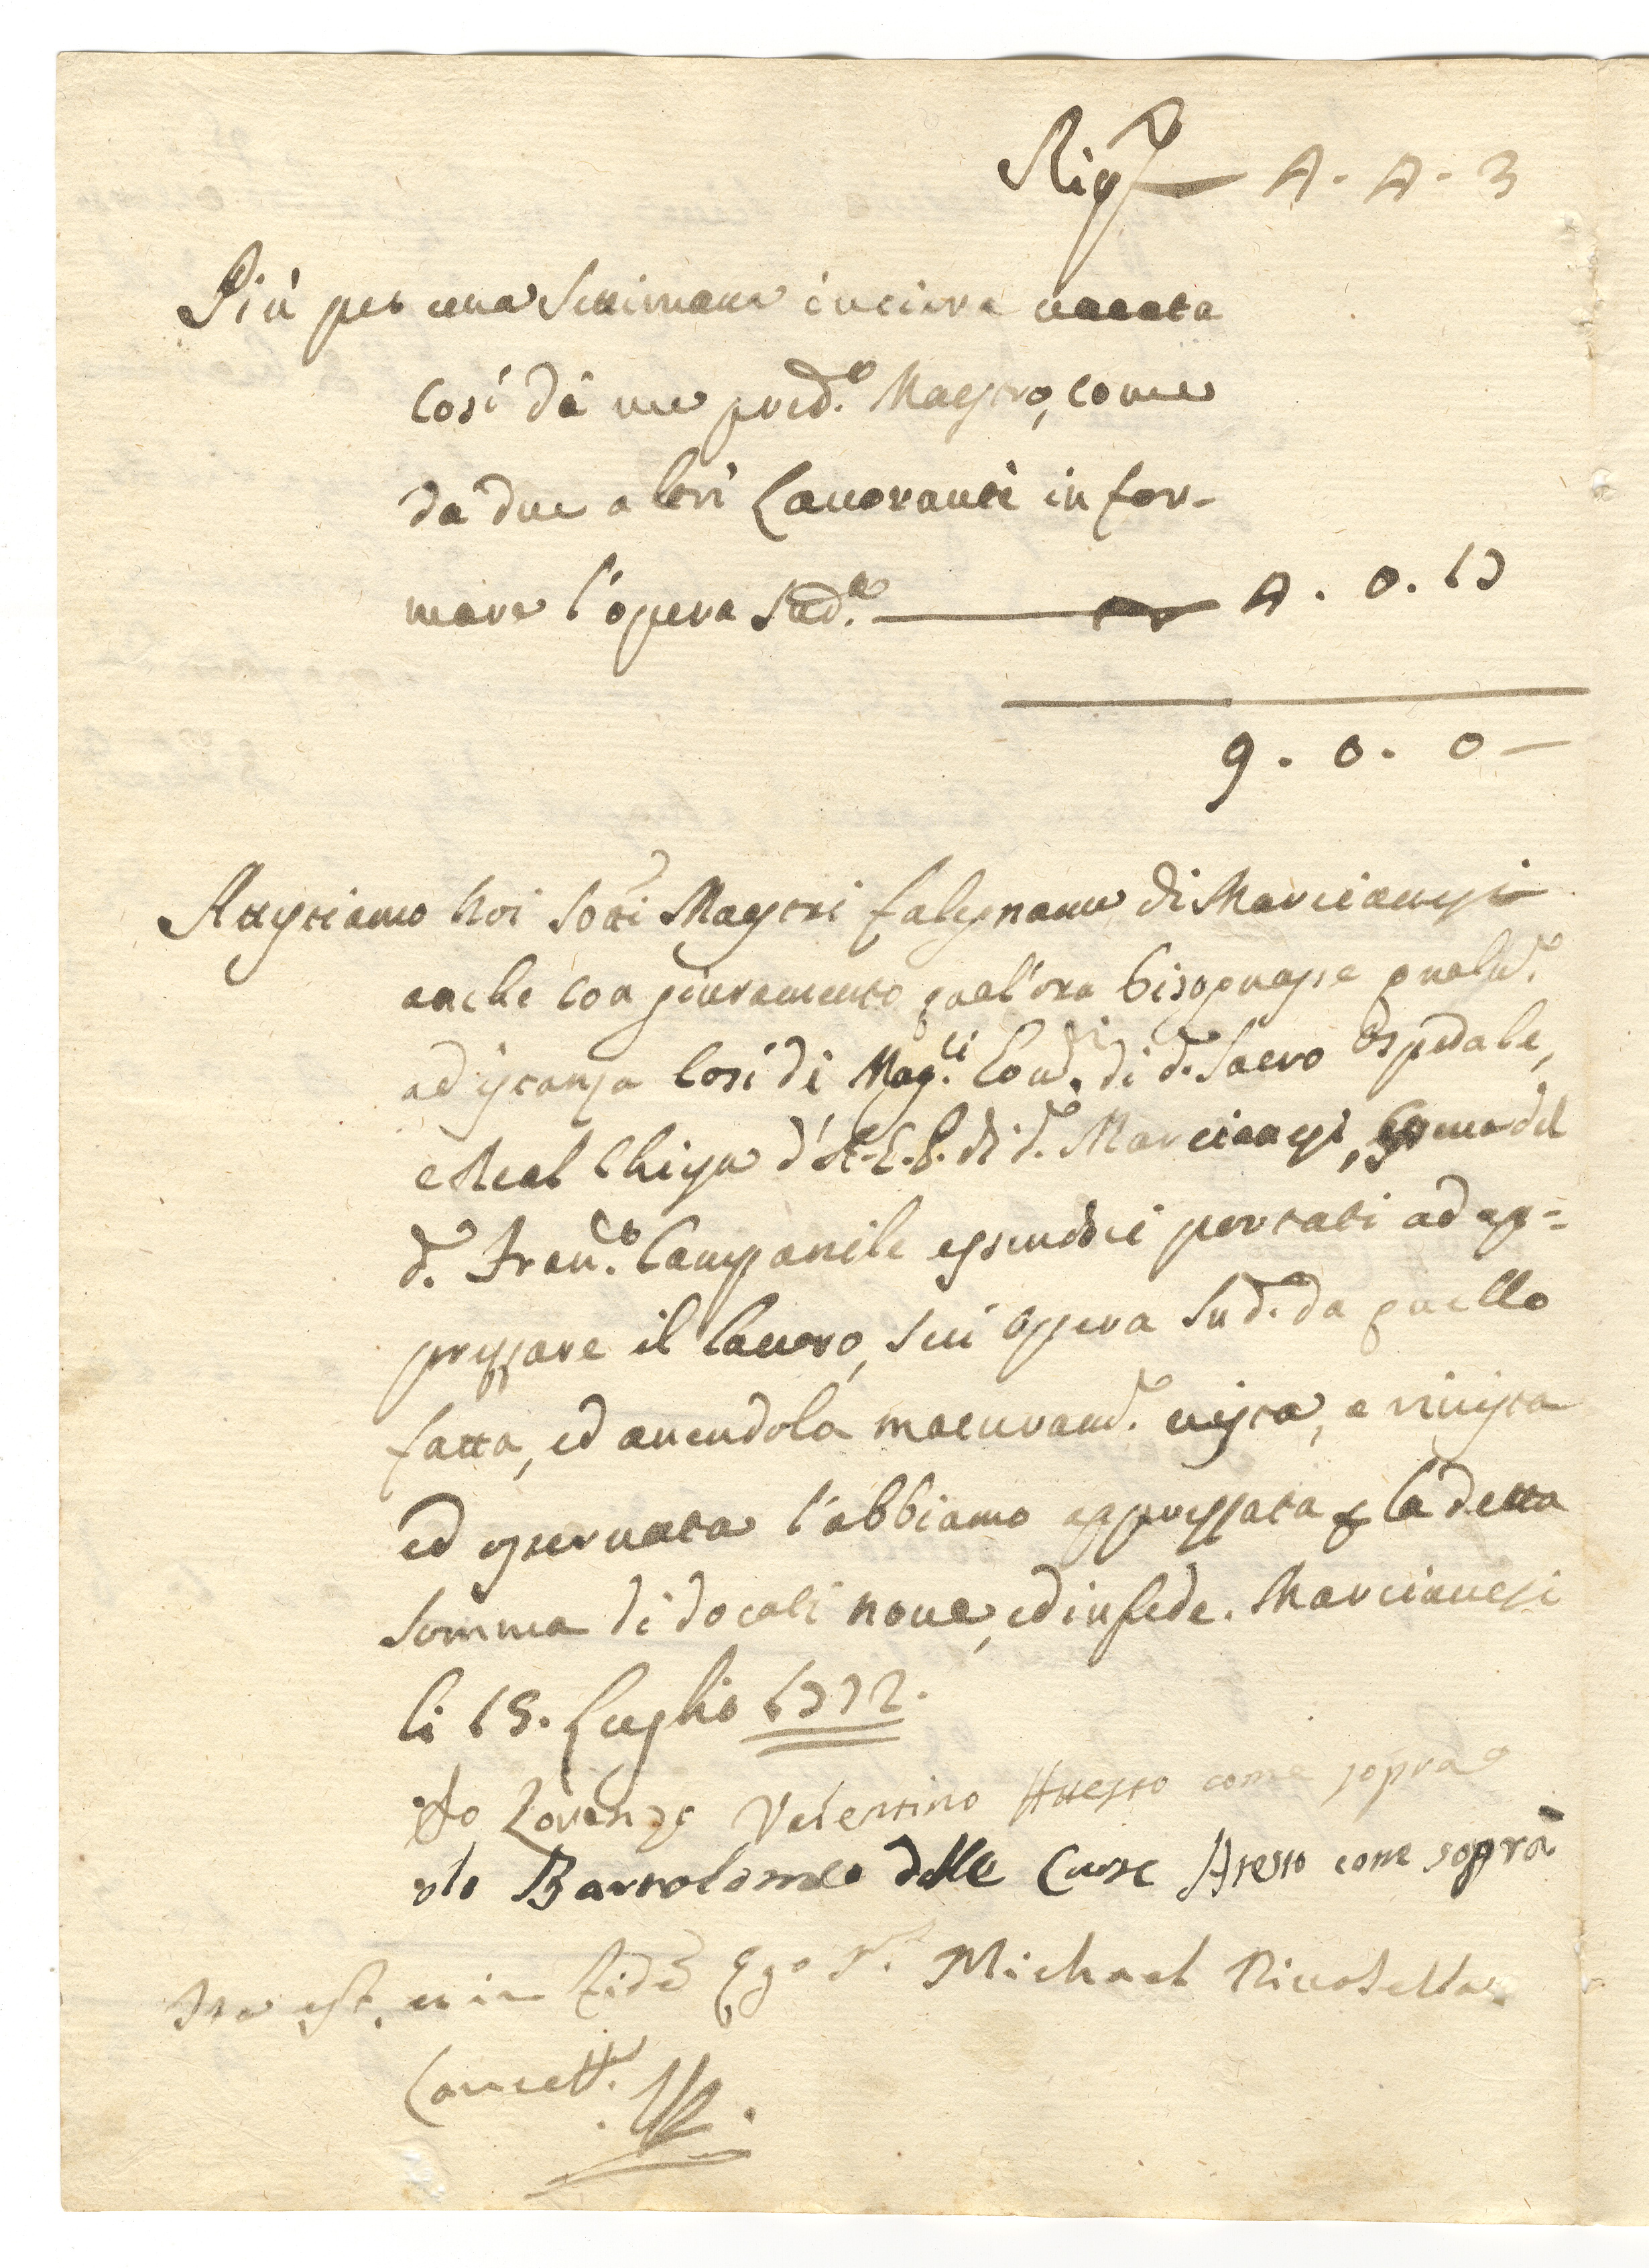 Rip.ta 4 - 4 - 3
Più per una Settimana intiera vacata
Così dà me pred.o Maestro, come
da due altri Lavoranti in for-
mare l'opera Sud.a 4. 0. 17
9. 0. 0
Attestiamo Noi Sotti Mastri falegname di Marcianesi
anche con giuramento qual'ora bisognasse qualm.e
ad istanza Così di Mag.ci di d.o Sacro Ospedale,
e Real Chiesa d'A.G.P. di d.o Marcianesi, come del
d.o Fran.co Campanile essendoci portati ad ap=
prezzare il lavoro, seu opera Sud.a da quello
fatta, ed avendola maturam.e vista, e rivista
ed osservata l'abbiamo apprezzata p la detta
Somma di docati nove, ed in fede. Marcianesi
li 15. Luglio 1772.
Io Lorenzo Valentino Attesto come sopra
Io Bartolomeo delle Curse Atesto come soprà
Ita est, et in fidem Ego N.r Michael
Cancell.